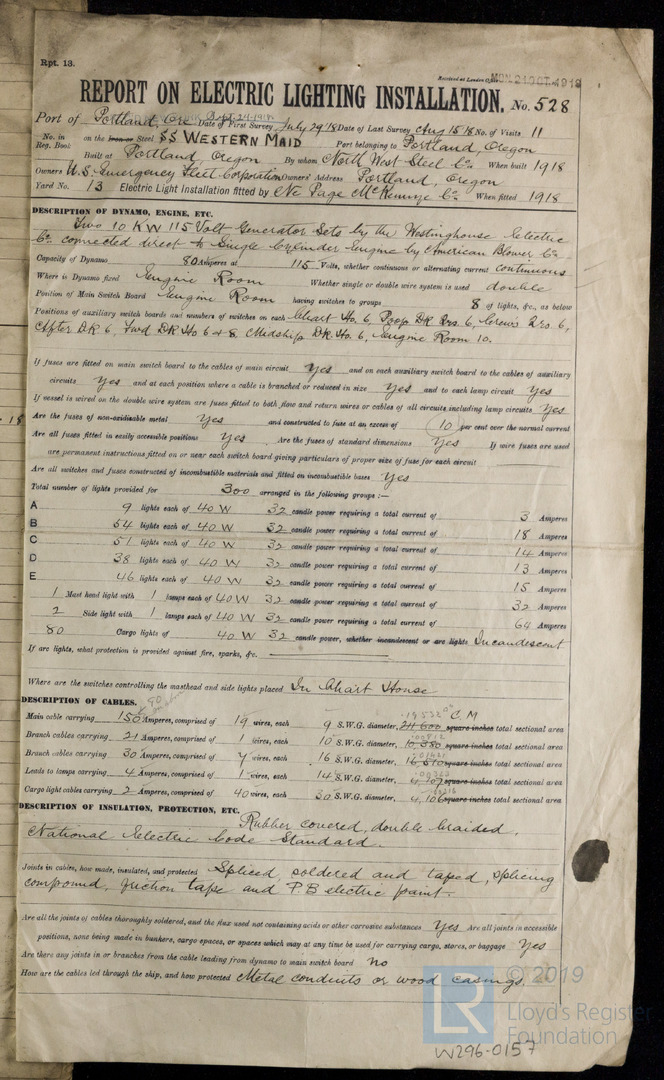 Rpt. 13.
Received at London Office MON. 21 OCT. 1918
REPORT ON ELECTRIC LIGHTING INSTALLATION. No. 528
Port of Portland, Ore Date of First Survey July 29 '18 Date of Last Survey Aug 15 18 No. of Visits 11
No. in Reg. Book on the Iron or Steel SS WESTERN MAID Port belonging to Portland, Oregon
Built at Portland, Oregon By whom North West Steel Co. When built 1918
Owners U.S. Emergency Fleet Corporation Owners' Address Portland, Oregon
Yard No. 13 Electric Light Installation fitted by Ne Page McKenny Co. When fitted 1918
DESCRIPTION OF DYNAMO, ENGINE, ETC.
Two 10 KW 115 Volt Generator Sets by the Westinghouse Electric
Co. connected direct to Single Cylinder Engine by American Blower Co.
Capacity of Dynamo 80 Amperes at 115 Volts, whether continuous or alternating current continuous
Where is Dynamo fixed Engine Room Whether single or double wire system is used double
Position of Main Switch Board Engine Room having switches to groups 8 of lights, &c., as below
Positions of auxiliary switch boards and numbers of switches on each Chart Ho. 6, Poop DK Qrs. 6, Crews Qrs 6,
After DK 6, Fwd DK Ho 6 & 8, Midship DK Ho. 6, Engine Room 10.
If fuses are fitted on main switch board to the cables of main circuit yes and on each auxiliary switch board to the cables of auxiliary
circuits yes and at each position where a cable is branched or reduced in size yes and to each lamp circuit yes
If vessel is wired on the double wire system are fuses fitted to both flow and return wires or cables of all circuits including lamp circuits yes
Are the fuses of non-oxidizable metal yes and constructed to fuse at an excess of 10 per cent over the normal current
Are all fuses fitted in easily accessible positions yes. Are the fuses of standard dimensions yes If wire fuses are used
are permanent instructions fitted on or near each switch board giving particulars of proper size of fuse for each circuit
Are all switches and fuses constructed of incombustible materials and fitted on incombustible bases yes
Total number of lights provided for 300 arranged in the following groups :—
A 9 lights each of 40 W 32 candle power requiring a total current of 3 Amperes
B 54 lights each of 40 W 32 candle power requiring a total current of 18 Amperes
C 51 lights each of 40 W 32 candle power requiring a total current of 14 Amperes
D 38 lights each of 40 W 32 candle power requiring a total current of 13 Amperes
E 46 lights each of 40 W 32 candle power requiring a total current of 15 Amperes
1 Mast head light with 1 lamps each of 40 W 32 candle power requiring a total current of 32 Amperes
2 Side light with 1 lamps each of 40 W 32 candle power requiring a total current of 64 Amperes
80 Cargo lights of 40 W 32 candle power, whether incandescent or arc lights Incandescent
If arc lights, what protection is provided against fire, sparks, &c.
Where are the switches controlling the masthead and side lights placed In Chart House
DESCRIPTION OF CABLES.
Main cable carrying 150 Amperes, comprised of 19 wires, each 9 S.W.G. diameter, 211 600 C.M square inches total sectional area
Branch cables carrying 21 Amperes, comprised of 1 wires, each 10 S.W.G. diameter, 10,380 square inches total sectional area
Branch cables carrying 30 Amperes, comprised of 7 wires, each 16 S.W.G. diameter, 16,510 square inches total sectional area
Leads to lamps carrying 4 Amperes, comprised of 1 wires, each 14 S.W.G. diameter, 4,107 square inches total sectional area
Cargo light cables carrying 2 Amperes, comprised of 40 wires, each 30 S.W.G. diameter, 4,106 square inches total sectional area
DESCRIPTION OF INSULATION, PROTECTION, ETC.
Rubber covered, double braided,
National Electric Code Standard.
Joints in cables, how made, insulated, and protected Spliced, soldered and taped, splicing
compound, friction tape and P.B electric paint.
Are all the joints of cables thoroughly soldered, and the flux used not containing acids or other corrosive substances yes Are all joints in accessible
positions, none being made in bunkers, cargo spaces, or spaces which may at any time be used for carrying cargo, stores, or baggage yes
Are there any joints in or branches from the cable leading from dynamo to main switch board no
How are the cables led through the ship, and how protected Metal conduits or wood casings.
LR © 2019
Lloyd's Register
Foundation
W296-0157